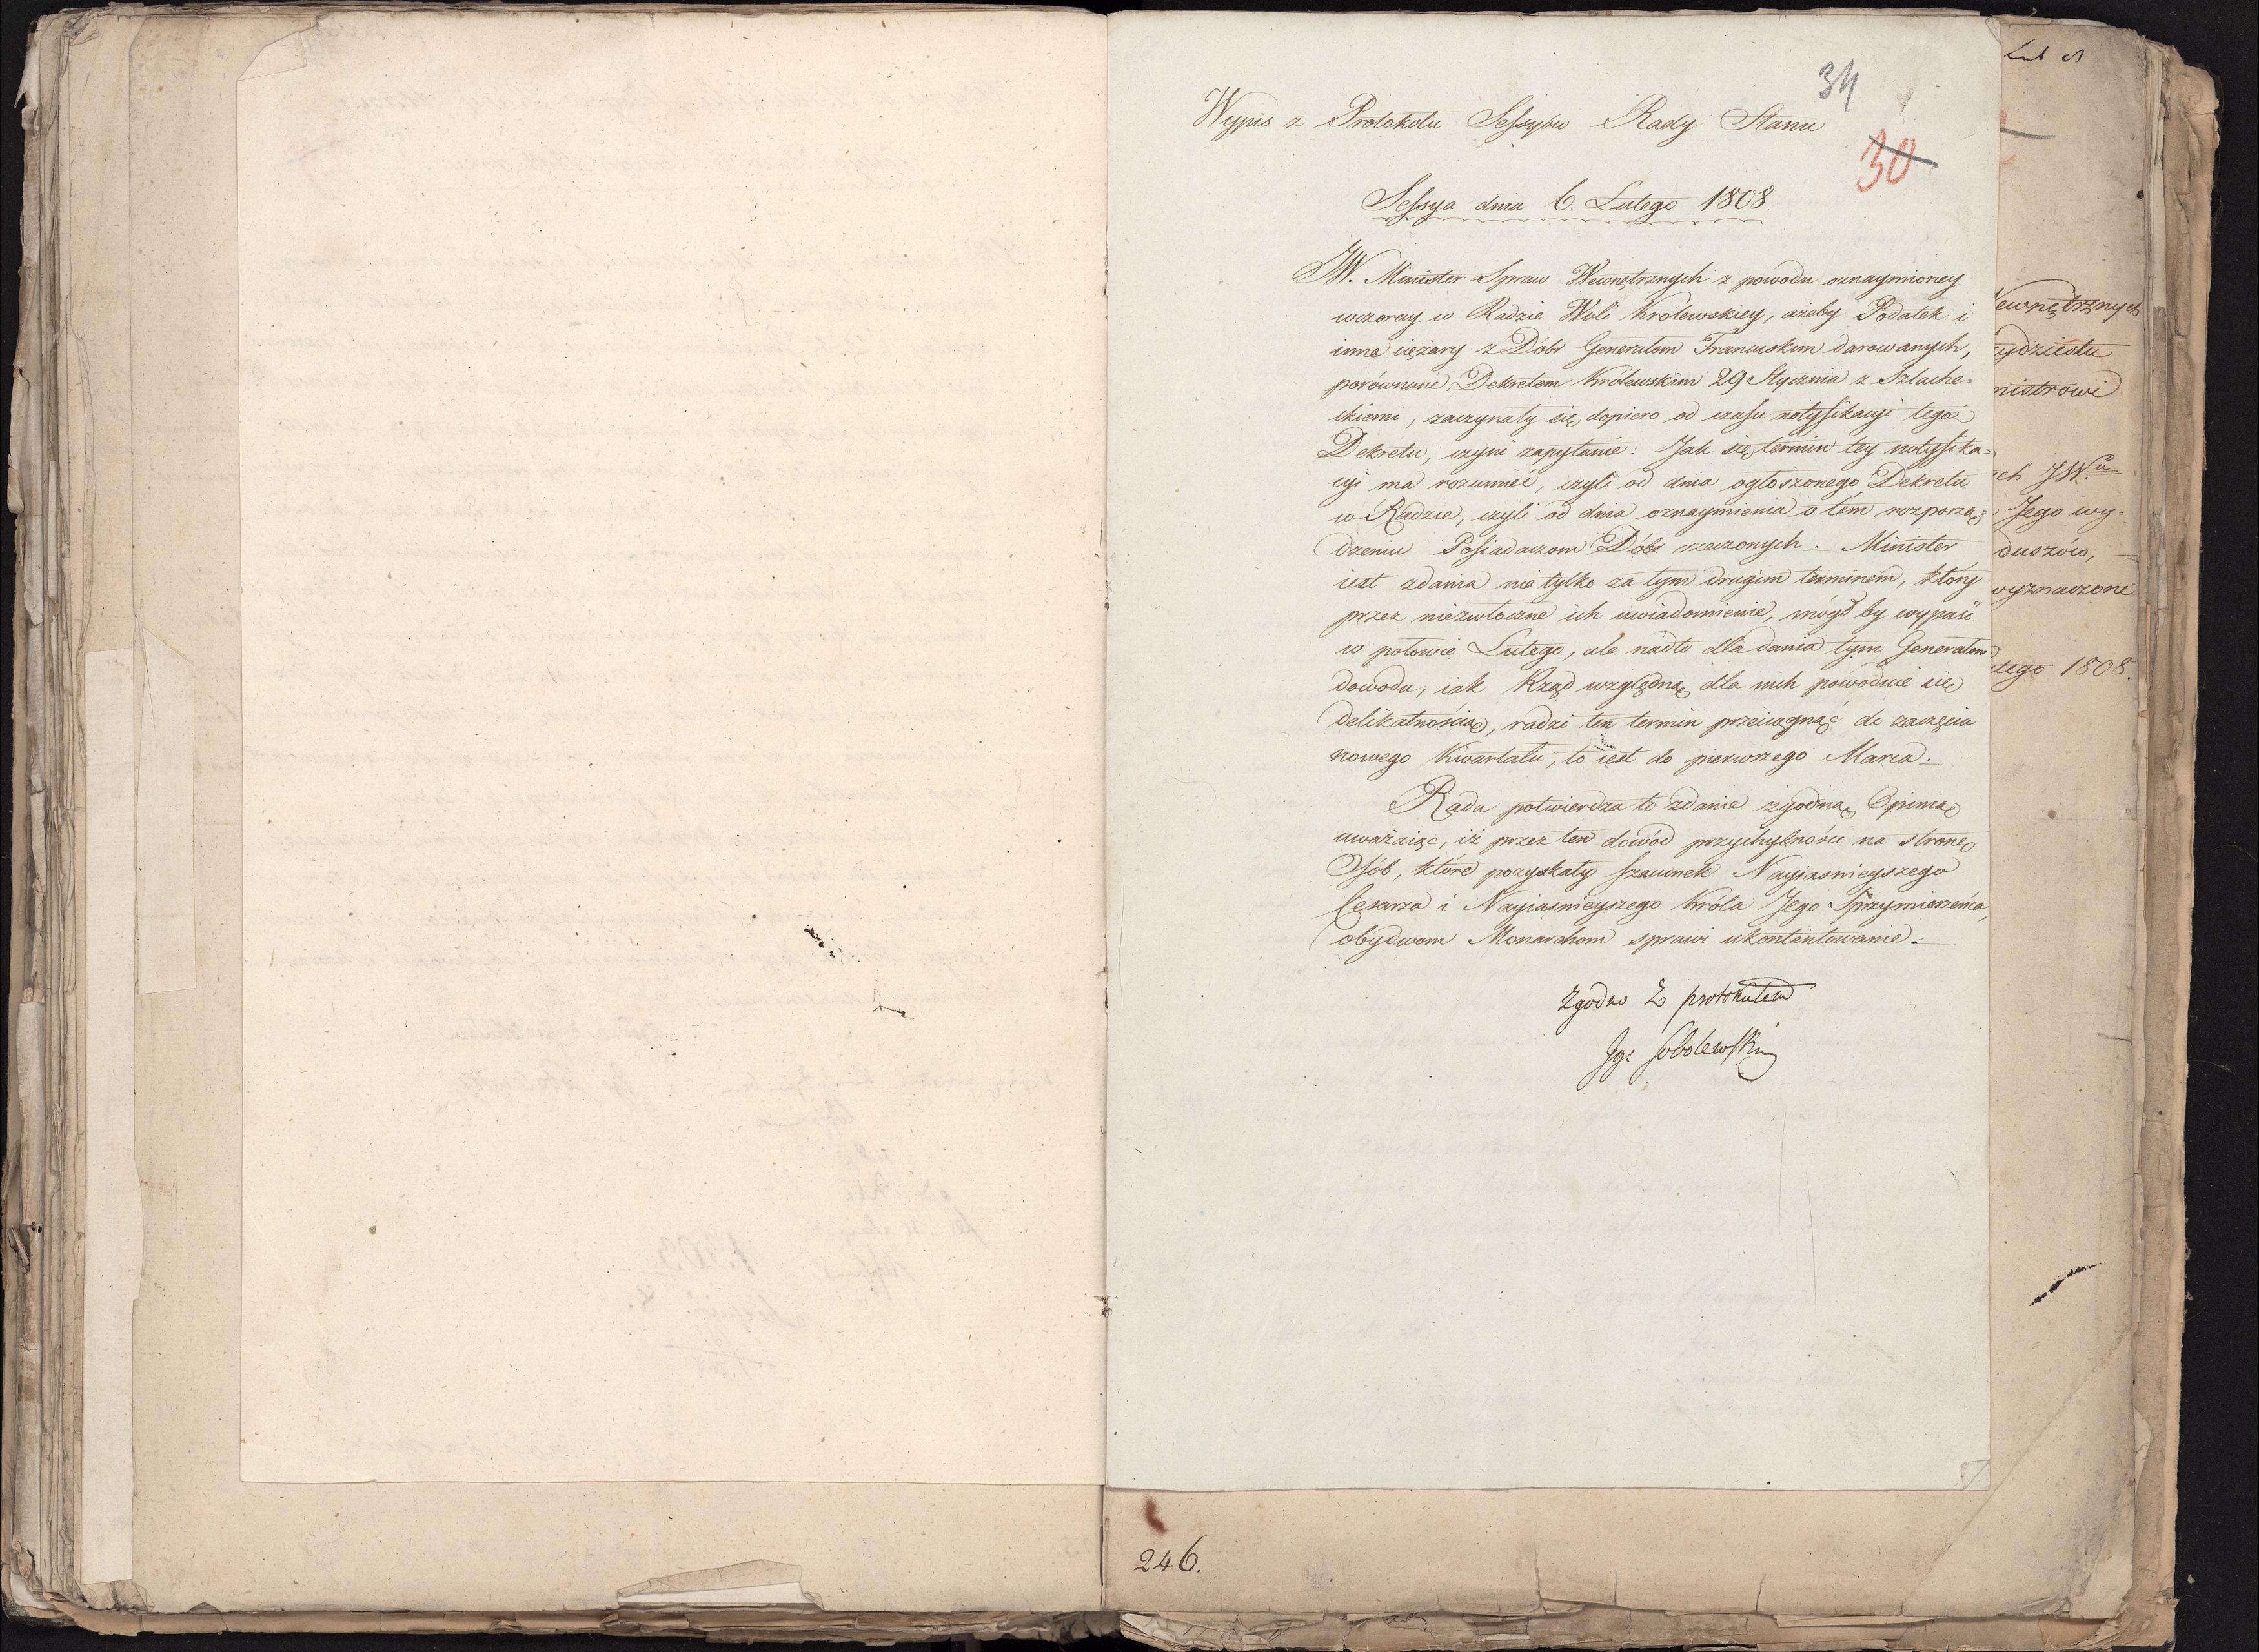 34
Wypis z Protokołu Sessyów Rady Stanu
30
Sessya dnia 6. Lutego 1808.
JW. Minister Spraw Wewnętrznych z powodu oznaymioney
wczoray w Radzie Woli Królewskiey, ażeby Podatek i
inne ciężary z Dóbr Generałom Francuskim darowanych,
porównane Dekretem Królewskim 29 Stycznia z Szlache=
ckiemi, zaczynały się dopiero od czasu notyfikacyi tegoż
Dekretu, czyni zapytanie: Jak się termin tey notyfika=
cyi ma rozumieć, czyli od dnia ogłoszonego Dekretu
w Radzie, czyli od dnia oznaymienia o tém rozporzą=
dzeniu Posiadaczom Dóbr rzeczonych. Minister
iest zdania nie tylko za tym drugim terminem, który
przez niezwłoczne ich uwiadomienie, mógł by wypaść
w połowie Lutego, ale nadto dla dania tym Generałom
dowodu, iak Rząd względną dla nich powoduie się
delikatnością, radzi ten termin przeciągnąć do zaczęcia
nowego Kwartału, to iest do pierwszego Marca.
Rada potwierdza to zdanie zgodną Opinią
uważaiąc, iż przez ten dowód przychylności na stronę
Osób, które pozyskały szacunek Nayiaśnieyszego
Cesarza i Nayiaśnieyszego Króla Jego Sprzymierzeńca,
obydwom Monarchom sprawi ukontentowanie.
Zgodno z protokułem
Ig: Sobolewski
246.
ewnętrznych
ydziestu
nistrowi
ch JW.
Jego wy=
duszów,
wyznaczone
tego 1808.